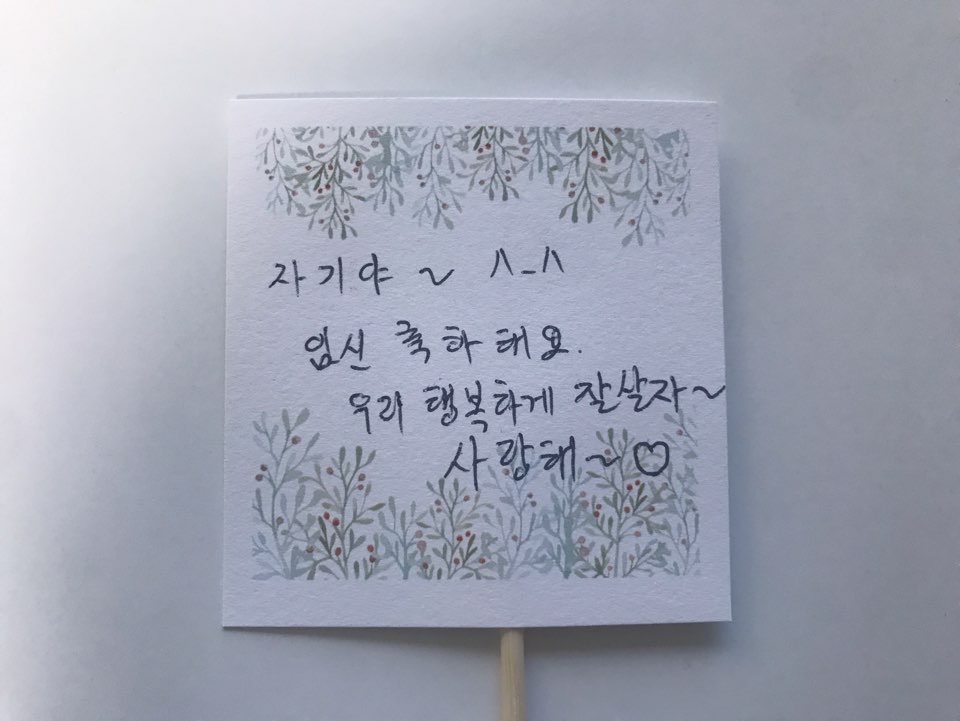 자기야~ ^-^
임신 축하해요.
우리 행복하게 잘살자~
사랑해~♡